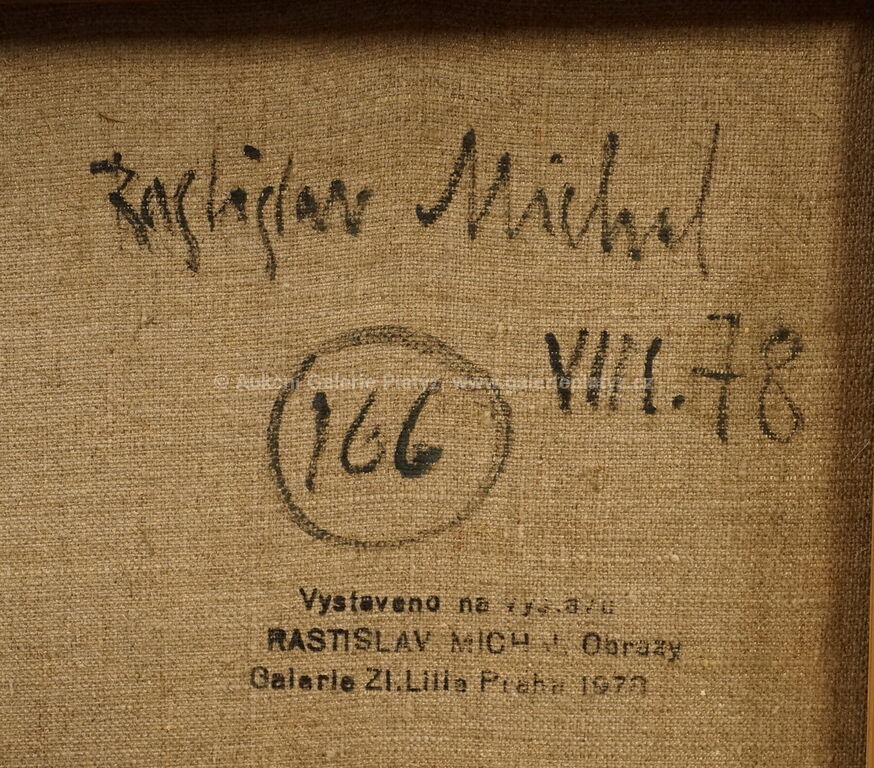 Rastislav Michal
VIII.78
© Aukční Galerie Platýz, www.galerieplatyz.cz
166
Vystaveno na
RASTISLAV MICHAL Obrazy
Galerie Zl.Lilie Praha